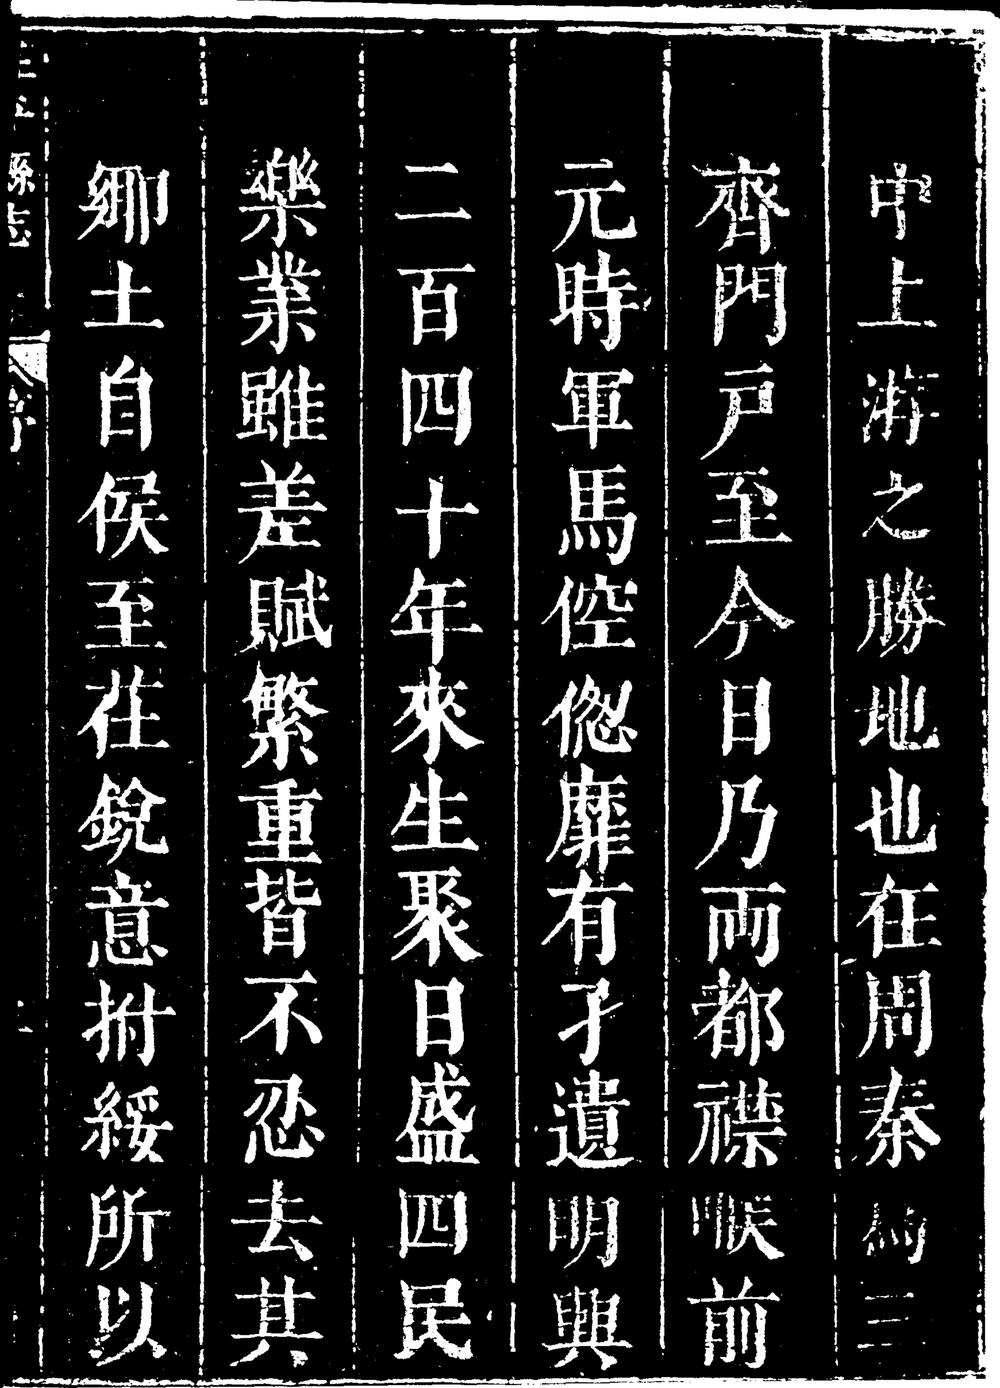 中上游之勝地也在周秦為三
齊門戶至今日乃両都襟喉前
元時軍馬倥偬靡有孑遺明興
二百四十年來生聚日盛四民
樂業雖差賦繁重皆不忍去其
鄉土自侯至茬銳意拊綏所以
縣志 序